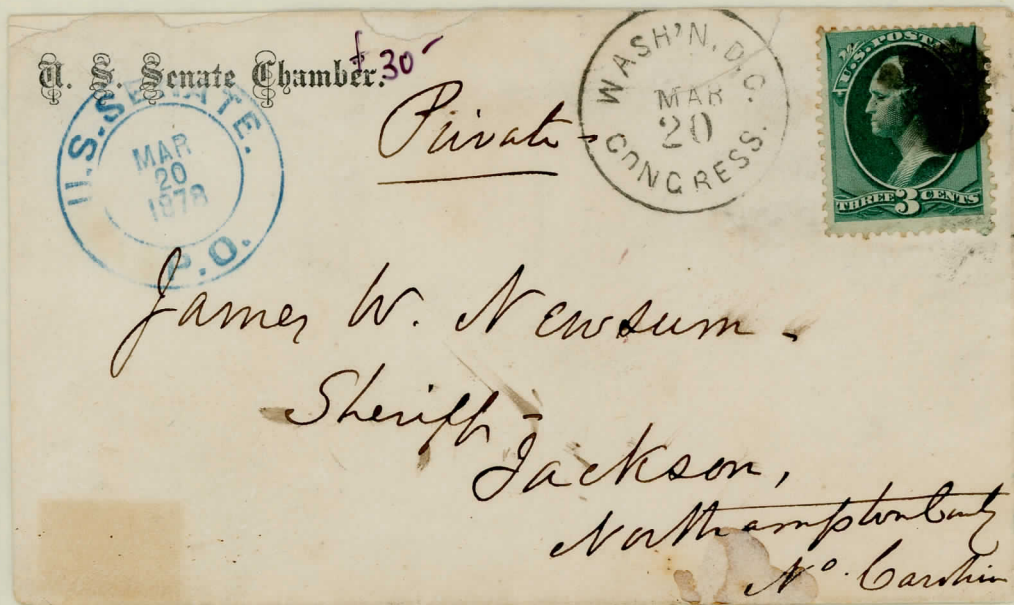 U. S. Senate Chamber.
30-
Private-
U.S. SENATE.
MAR
20
1878
P.O.
WASH'N. D.C.
MAR
20
CONGRESS.
U.S. POSTA
THREE 3 CENTS
James W. Newsum-
Sheriff-
Jackson,
Northampton County
No. Carolina